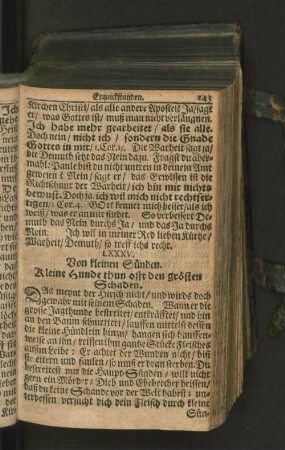 Erquickstunden. 243
Kirchen Christi/ als alle andere Apostel? Ja/ sagt
er/ was Gottes ist/ muß man nicht verläugnen.
Ich habe mehr gearbeitet/ als sie alle.
Doch nein/ nicht ich/ sondern die Gnade
Gottes in mir/ 1. Cor. Die Warheit sagt ja/
die Demuth setzt das Nein dazu. Fragst du aber-
mahl: Paule bist du nicht untren in deinem Amt
gewesen? Nein/ sagt er/ das Gewissen ist die
Richtschnur der Warheit/ ich bin mir nichts
bewust. Doch ja/ ich wil mich nicht rechtfer-
tigen/ 1 Cor. 4. GOtt kennet mich besser/ als ich
weiß/ was er an mir findet. So verbessert De-
muth das Nein durchs Ja/ und das Ja durchs
Nein. Ich wil in meiner Red lieben Kürtze/
Warheit/ Demuth/ so treff ichs recht.
LXXXV.
Von kleinen Sünden.
Kleine Hunde thun offt den grösten
Schaden.
DAs meynt der Hirsch nicht/ und wirds doch
gewahr mit seinem Schaden. Wann er die
grosse Jagthunde bestreitet/ entkräfftet/ und hin
an den Baum schmettert/ lauffen mittels dessen
die kleine Hündlein hinzu/ hangen sich hauffen-
weise an ihn/ reissen ihm gantze Stücke Fleisches
aus dem Leibe: Er achtet der Wunden nicht/ biß
sie eitern und faulen/ so muß er dran sterben. Du
bestreitest nur die Haupt-Sünden/ wilt nicht
gern ein Mörder/ Dieb und Ehebrecher heissen/
daß du keine Schande vor der Welt habest: un-
terdessen verzückt dich dein Fleisch durch kleine
Sün-